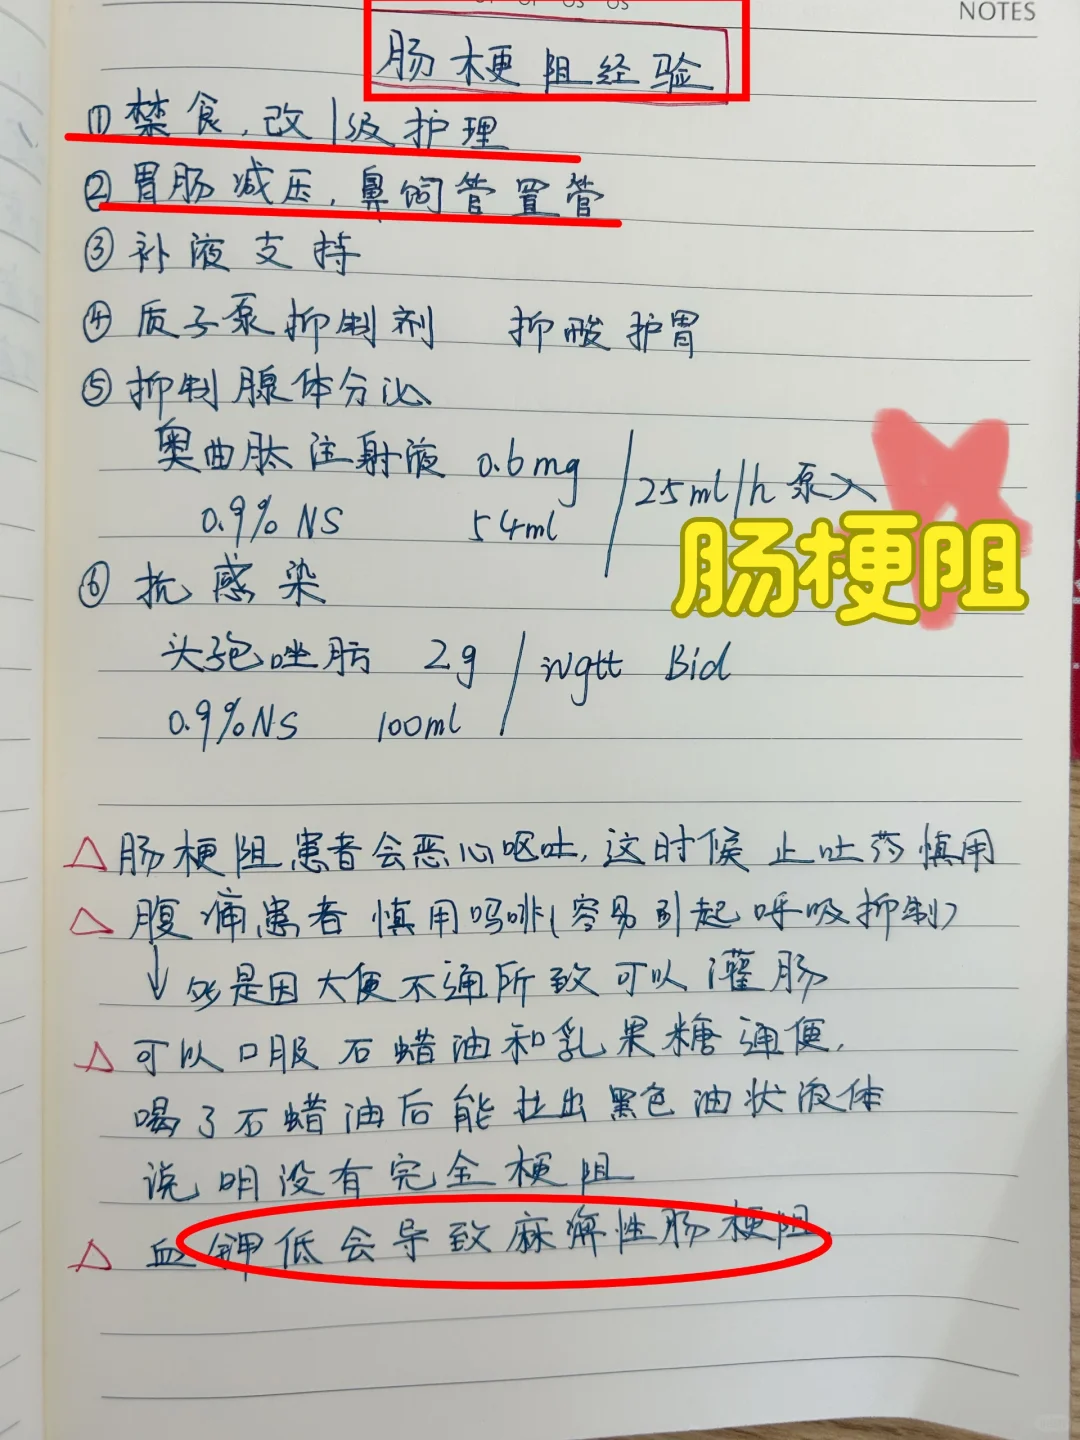 NOTES
肠梗阻经验
① 禁食,改1级护理
② 胃肠减压,鼻饲管置管
③ 补液支持
④ 质子泵抑制剂 抑酸护胃
⑤ 抑制腺体分泌
奥曲肽注射液 0.6mg / 25ml/h 泵入
0.9% NS 54ml
肠梗阻
⑥ 抗感染
头孢唑肟 2g / ivgtt Bid
0.9%NS 100ml
△ 肠梗阻患者会恶心呕吐,这时候止吐药慎用
△ 腹痛患者 慎用吗啡(容易引起呼吸抑制)
↓ 是因大便不通所致可以灌肠
△ 可以口服石蜡油和乳果糖通便,
喝了石蜡油后能拉出黑色油状液体
说明没有完全梗阻
△ 血钾低会导致麻痹性肠梗阻.